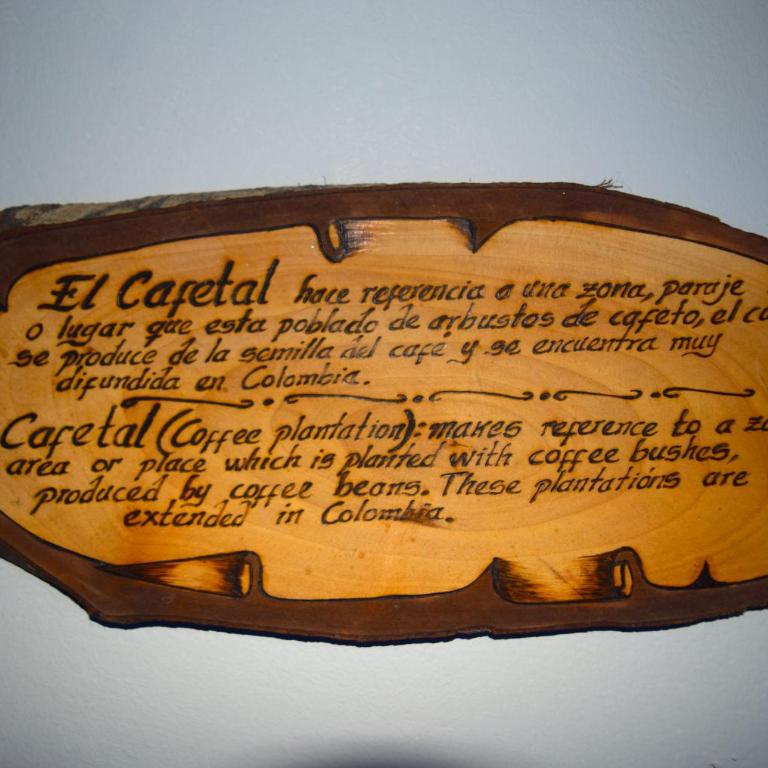 El Cafetal hace referencia a una zona, paraje
o lugar que esta poblado de arbustos de cafeto, el
se produce de la semilla del cafe y se encuentra muy
difundida en Colombia.
Cafetal (Coffee plantation): makes reference to a
area or place which is planted with coffee bushes,
produced by coffee beans. These plantations are
extended in Colombia.